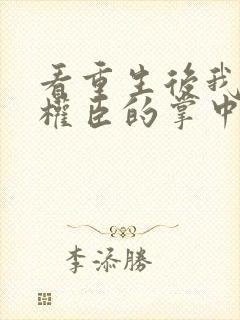 看重生後我
權臣的掌中
李添勝